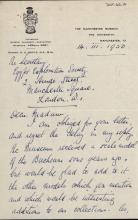 THE MANCHESTER MUSEUM
THE UNIVERSITY
MANCHESTER, 13
14. III. 1950
The Secretary
Egypt Exploration Society
2 Hinde Street
Manchester Square
London, W.1.
Dear Madam,
I am obliged for your letter,
and regret the delay in my reply.
The Museum received a
of the Bucheum some years ago,
but would be glad to add to it
the other models which you mention
and which would be interesting
addition to our collection. In